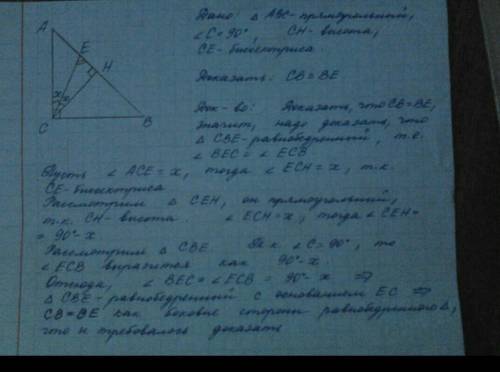 Дано: △ ABC - прямоугольный,
∠C = 90°, CH - высота,
CE - биссектриса.
Доказать: CB = BE
Док-во: Доказать, что CB = BE,
значит, надо доказать, что
△ CBE - равнобедренный, т.е.
∠ BEC = ∠ ECB
A
E
H
x
x
C
B
Пусть ∠ ACE = x, тогда ∠ ECH = x, т.к.
CE - биссектриса
Рассмотрим △ CEH, он прямоугольный,
т.к. CH - высота. ∠ ECH = x, тогда ∠ CEH =
= 90° - x
Рассмотрим △ CBE. Т.к ∠ C = 90°, то
∠ ECB выразится как 90° - x
Отсюда, ∠ BEC = ∠ ECB = 90° - x ⇒
△ CBE - равнобедренный с основанием EC ⇒
CB = BE как боковые стороны равнобедренного △,
что и требовалось доказать